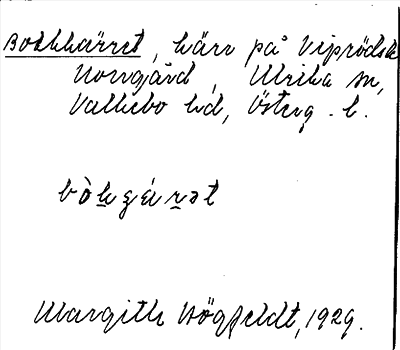 Bockkärret, kärr på Viprödsle
Norrgård, Ulrika sn,
Valkebo hd, Österg. l.
bòkɕǽrət
Margith Högfeldt, 1929.